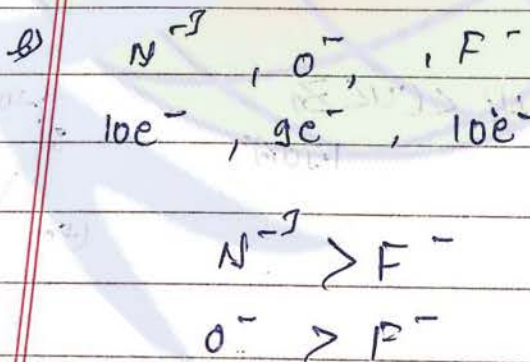 b) N⁻³ , O⁻, , F⁻
10e⁻ , 9e⁻ , 10e⁻
N⁻³ > F⁻
O⁻ > F⁻